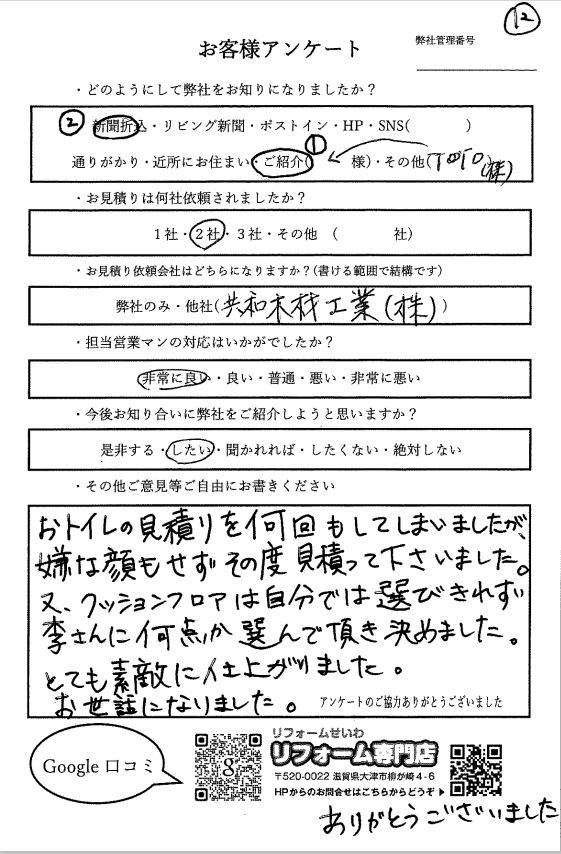 ⑫
お客様アンケート
弊社管理番号
・どのようにして弊社をお知りになりましたか？
② 新聞折込・リビング新聞・ポストイン・HP・SNS(　　　)
①
通りがかり・近所にお住まい・ご紹介(　　様)・その他(TOTO(株))
・お見積りは何社依頼されましたか？
1社・2社・3社・その他　(　　　社)
・お見積り依頼会社はどちらになりますか？(書ける範囲で結構です)
弊社のみ・他社(共和木材工業(株))
・担当営業マンの対応はいかがでしたか？
非常に良い・良い・普通・悪い・非常に悪い
・今後お知り合いに弊社をご紹介しようと思いますか？
是非する・したい・聞かれれば・したくない・絶対しない
・その他ご意見等ご自由にお書きください
おトイレの見積りを何回もしてしまいましたが、
嫌な顔もせずその度見積って下さいました。
又、クッションフロアは自分では選びきれず
李さんに何点か選んで頂き決めました。
とても素敵に仕上がりました。
お世話になりました。
アンケートのご協力ありがとうございました
Google 口コミ
g
リフォームせいわ
リフォーム専門店
〒520-0022 滋賀県大津市柳が崎4-6
HPからのお問合せはこちらからどうぞ▶
ありがとうございました